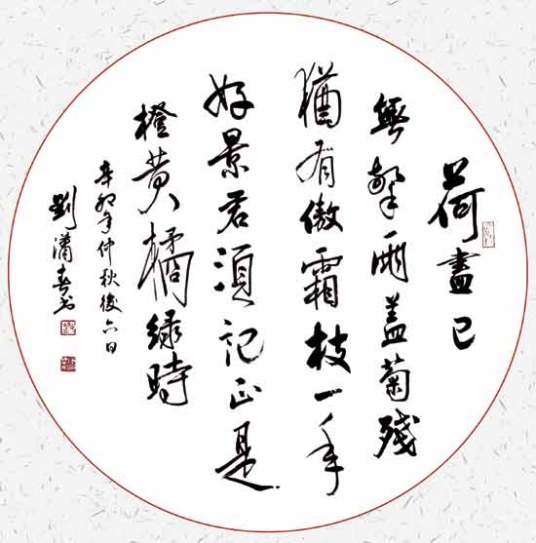 荷盡已
無擎雨蓋菊殘
猶有傲霜枝一年
好景君須记正是
橙黄橘绿時
辛卯年仲秋後六日
劉蒲春书